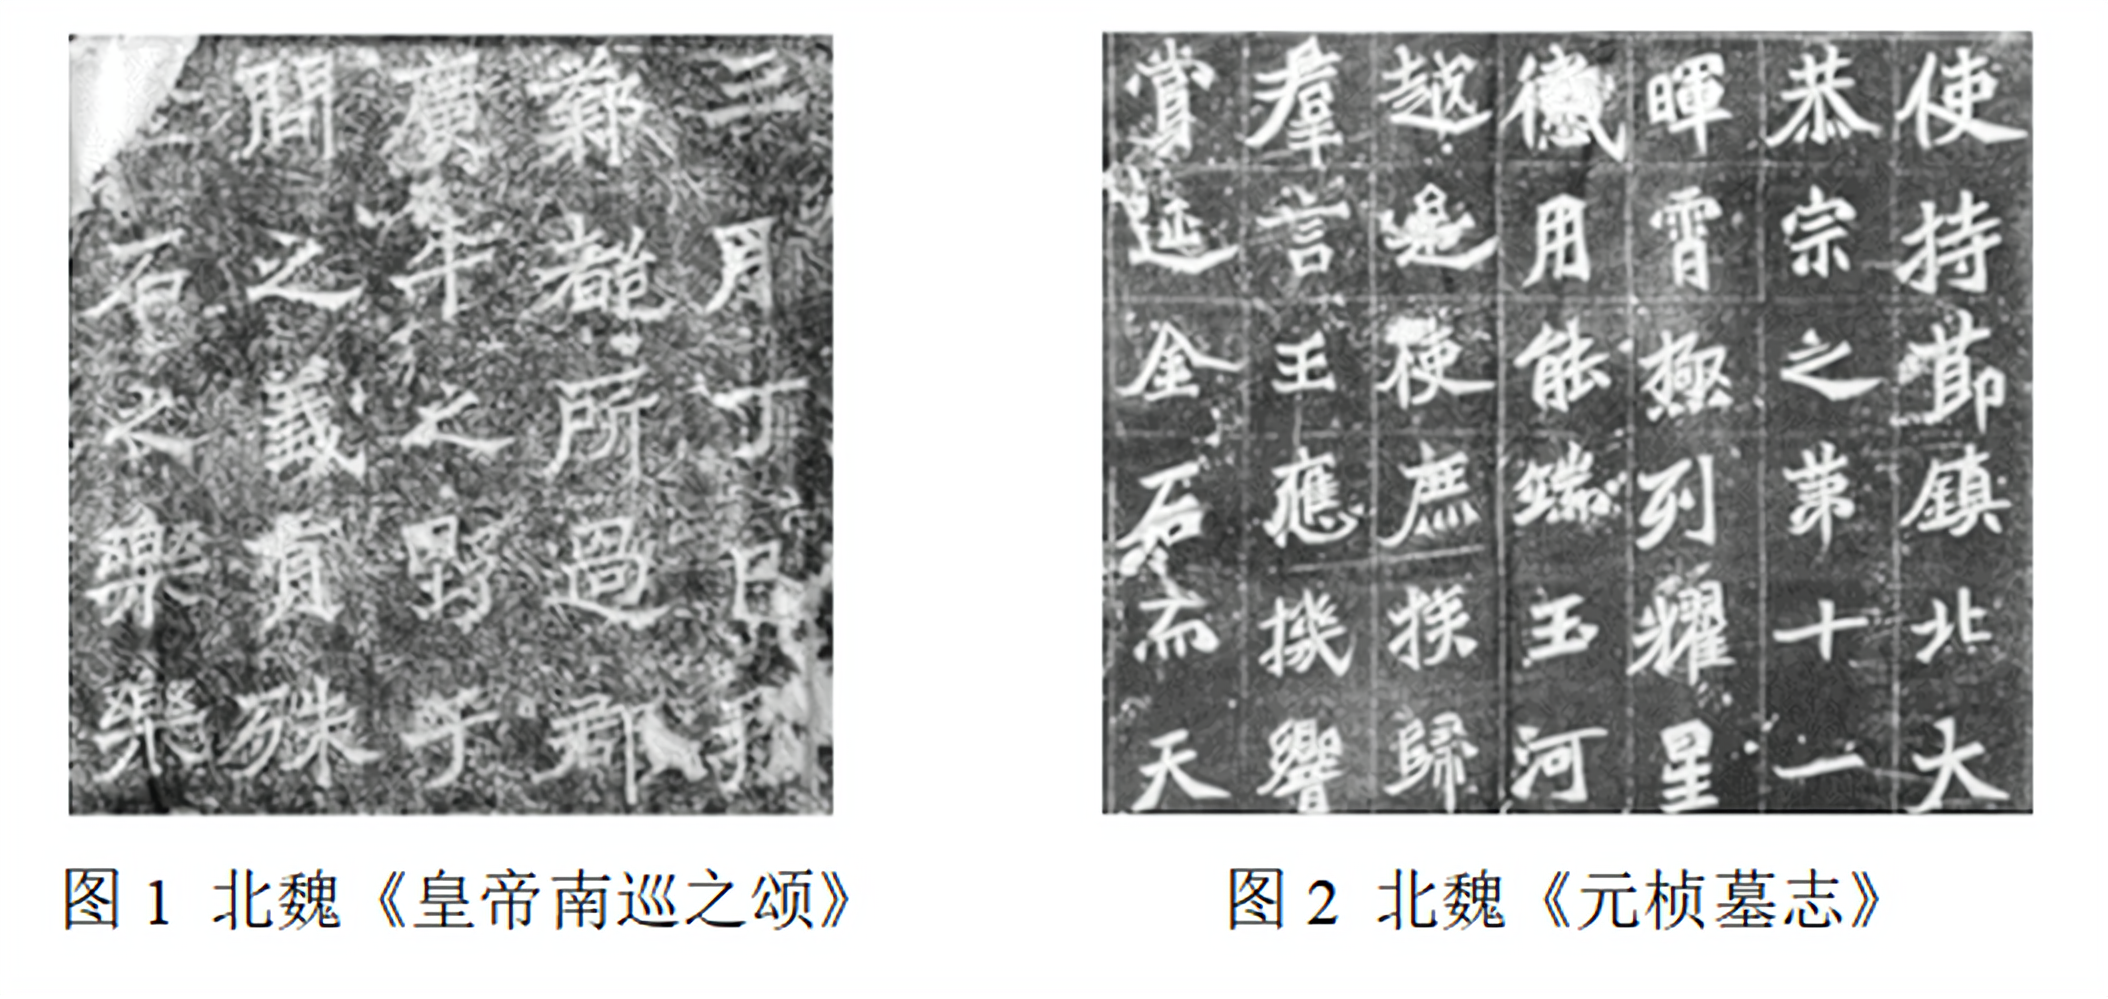 三月丁日
都所過郡
廣平之野于
間之義實殊
石之樂樂
图 1 北魏《皇帝南巡之颂》
使持節鎮北大
恭宗之第十一
暉霄極列耀星
德用能端玉河
越是使庶族歸
羣言王應機響
賞延金石而天
图 2 北魏《元桢墓志》